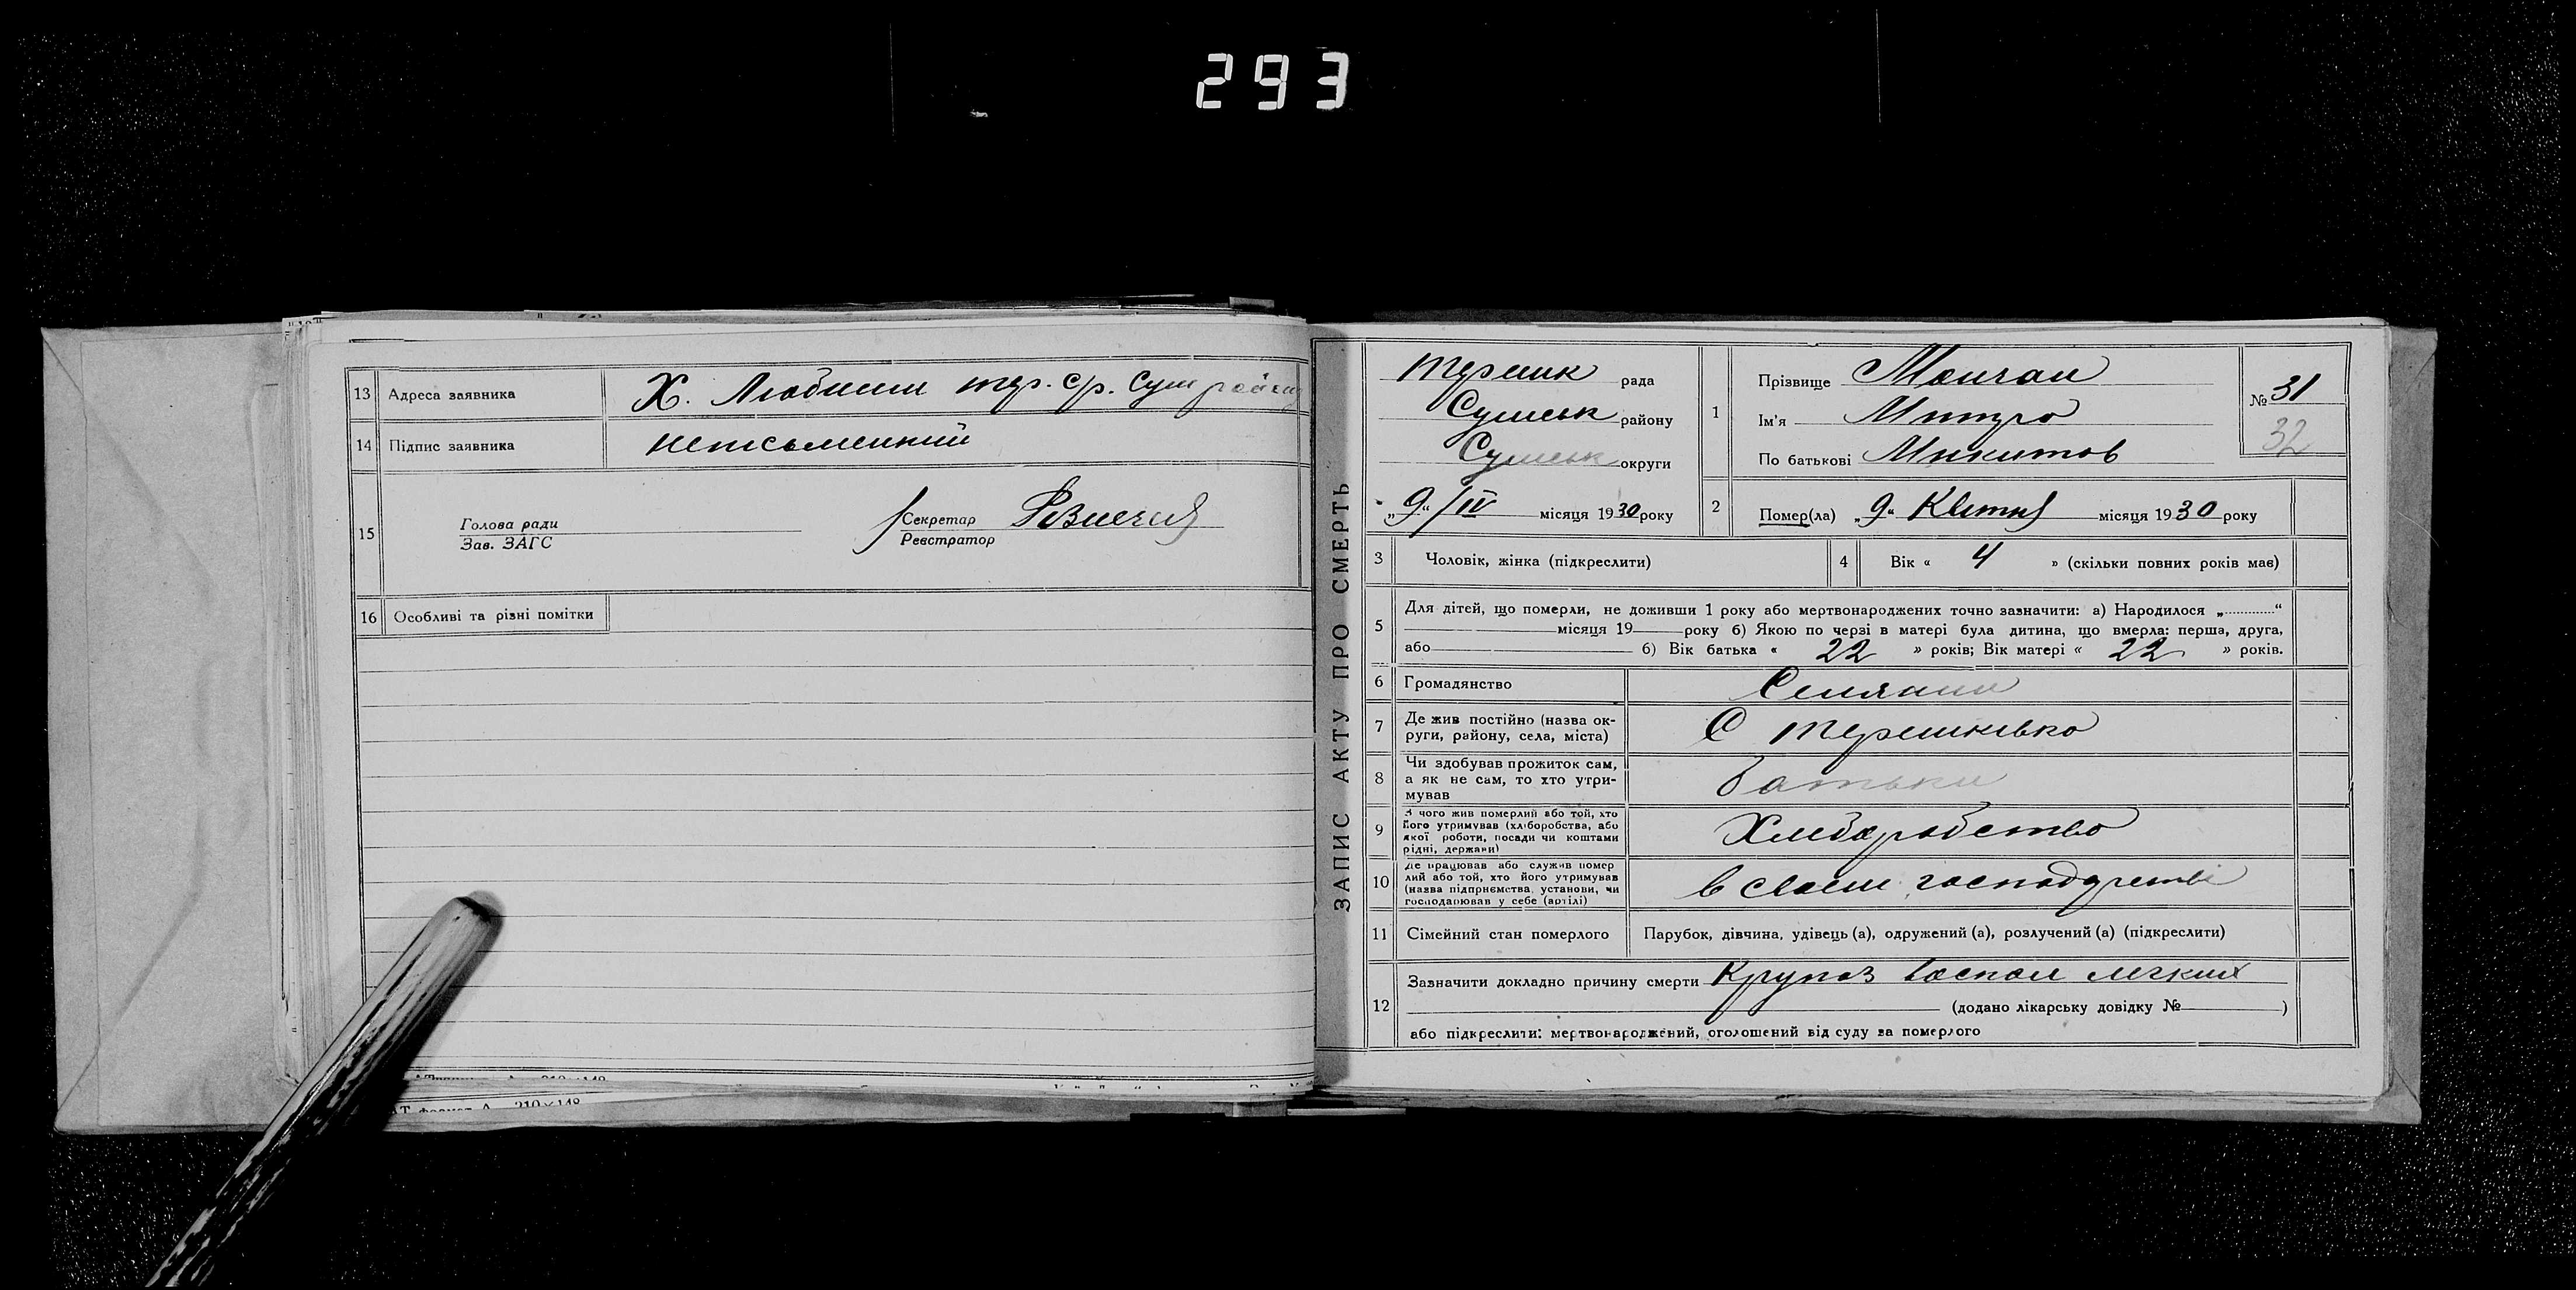 293
13 Адреса заявника Х. Любими тер. с/р. Сум району
14 Підпис заявника неписьменний
15 Голова ради
Зав. ЗАГС
Секретар
Реєстратор
16 Особливі та різні помітки
ЗАПИС АКТУ ПРО СМЕРТЬ
Терешк рада
Сумськ району
Сумськ округи
„9“/IV місяця 1930 року
1 Прізвище Мончан
Ім'я Митро
По батькові Микитов
№ 31
32
2 Помер(ла) „9“ Квітня місяця 1930 року
3 Чоловік, жінка (підкреслити)
4 Вік « 4 » (скільки повних років має)
5 Для дітей, що померли, не доживши 1 року або мертвонароджених точно зазначити: а) Народилося „ “
місяця 19 року б) Якою по черзі в матері була дитина, що вмерла: перша, друга,
або б) Вік батька « 22 » років; Вік матері « 22 » років.
6 Громадянство Селянин
7 Де жив постійно (назва ок-
руги, району, села, міста) С Терешківка
8 Чи здобував прожиток сам,
а як не сам, то хто утри-
мував батьки
9 З чого жив померлий або той, хто
його утримував (хліборобства, або
якої роботи, посади чи коштами
рідні, держави) Хлебаробство
10 Де працював або служив помер
лий або той, хто його утримував
(назва підприємства, установи, чи
господарював у себе (артілі) в своем господарстві
11 Сімейний стан померлого Парубок, дівчина, удівець (а), одружений (а), розлучений (а) (підкреслити)
12 Зазначити докладно причину смерти Крупоз воспал легких
(додано лікарську довідку № )
або підкреслити: мертвонароджений, оголошений від суду за померлого